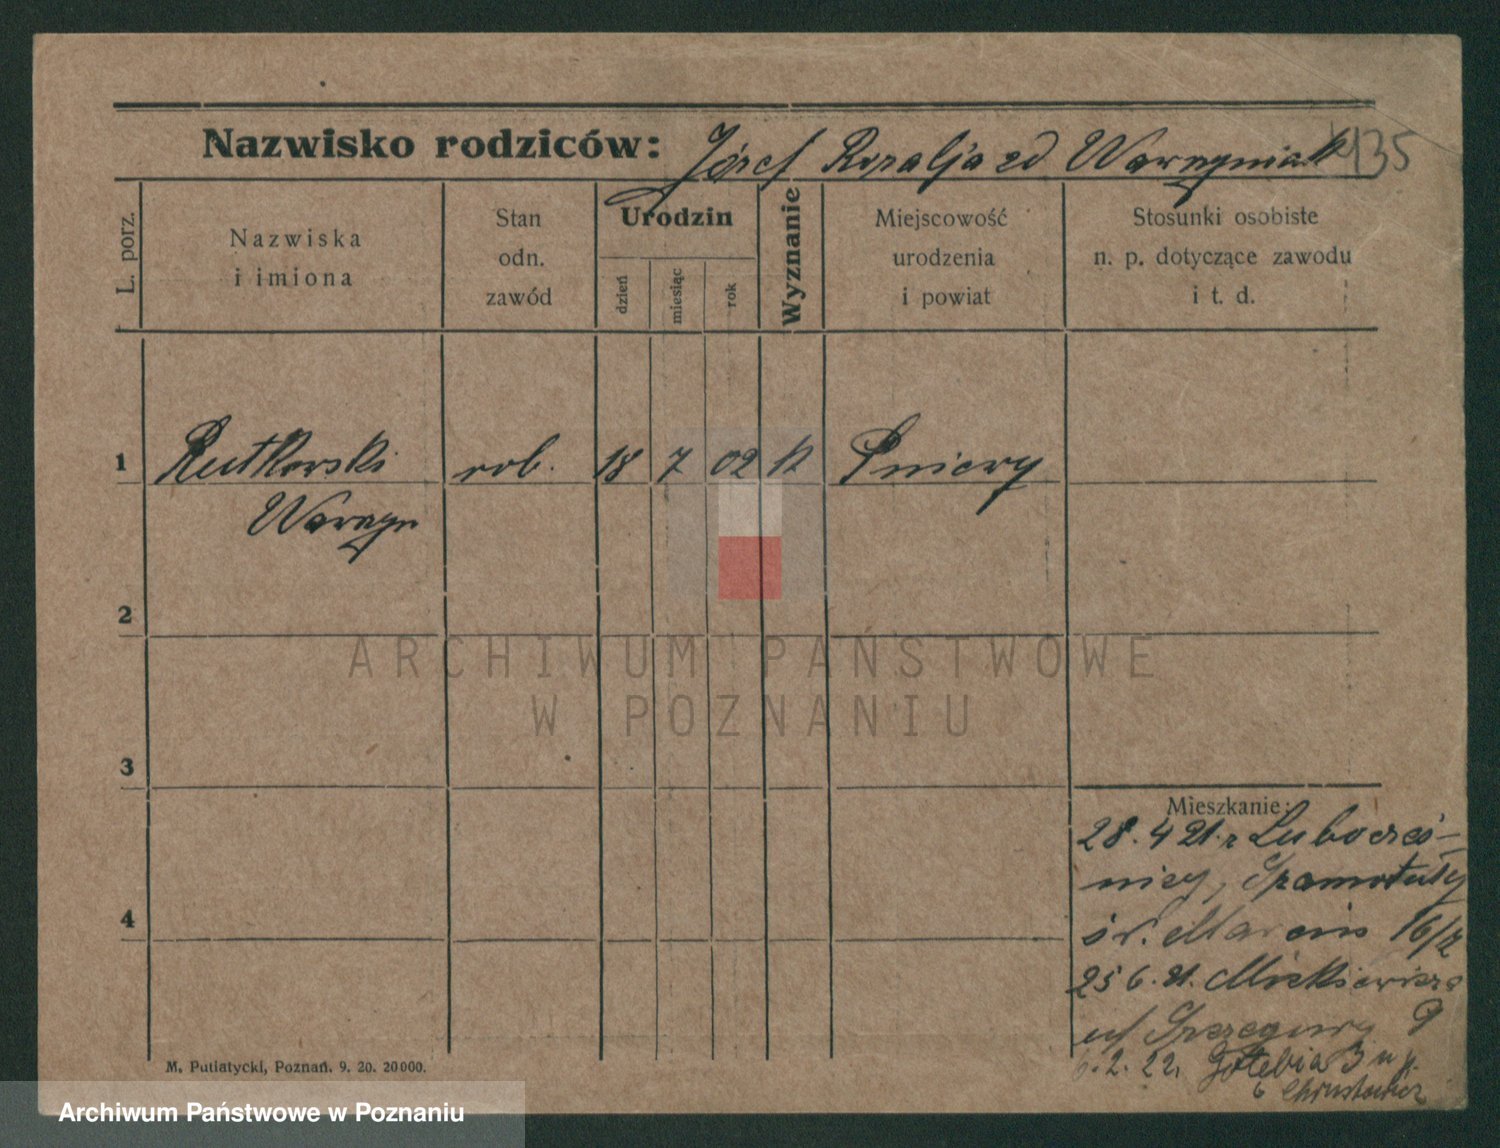 Nazwisko rodziców: Józef Rozalja zd Wawrzyniak 435
L. porz.
Nazwiska
i imiona
Stan
odn.
zawód
Urodzin
dzień
miesiąc
rok
Wyznanie
Miejscowość
urodzenia
i powiat
Stosunki osobiste
n. p. dotyczące zawodu
i t. d.
1 Rutkowski rob. 18 7 02 k Pniewy
Wawrzyn
2
ARCHIWUM PAŃSTWOWE
W POZNANIU
3
Mieszkanie:
28. 4 21. z Lubocześ-
nicy, Szamotuły
św. Marcin 16/17
25 6. 21. Mickiewicza 9
6. 2. 22. Gołębia 3
4
M. Putiatycki, Poznań. 9. 20. 20000.
Archiwum Państwowe w Poznaniu